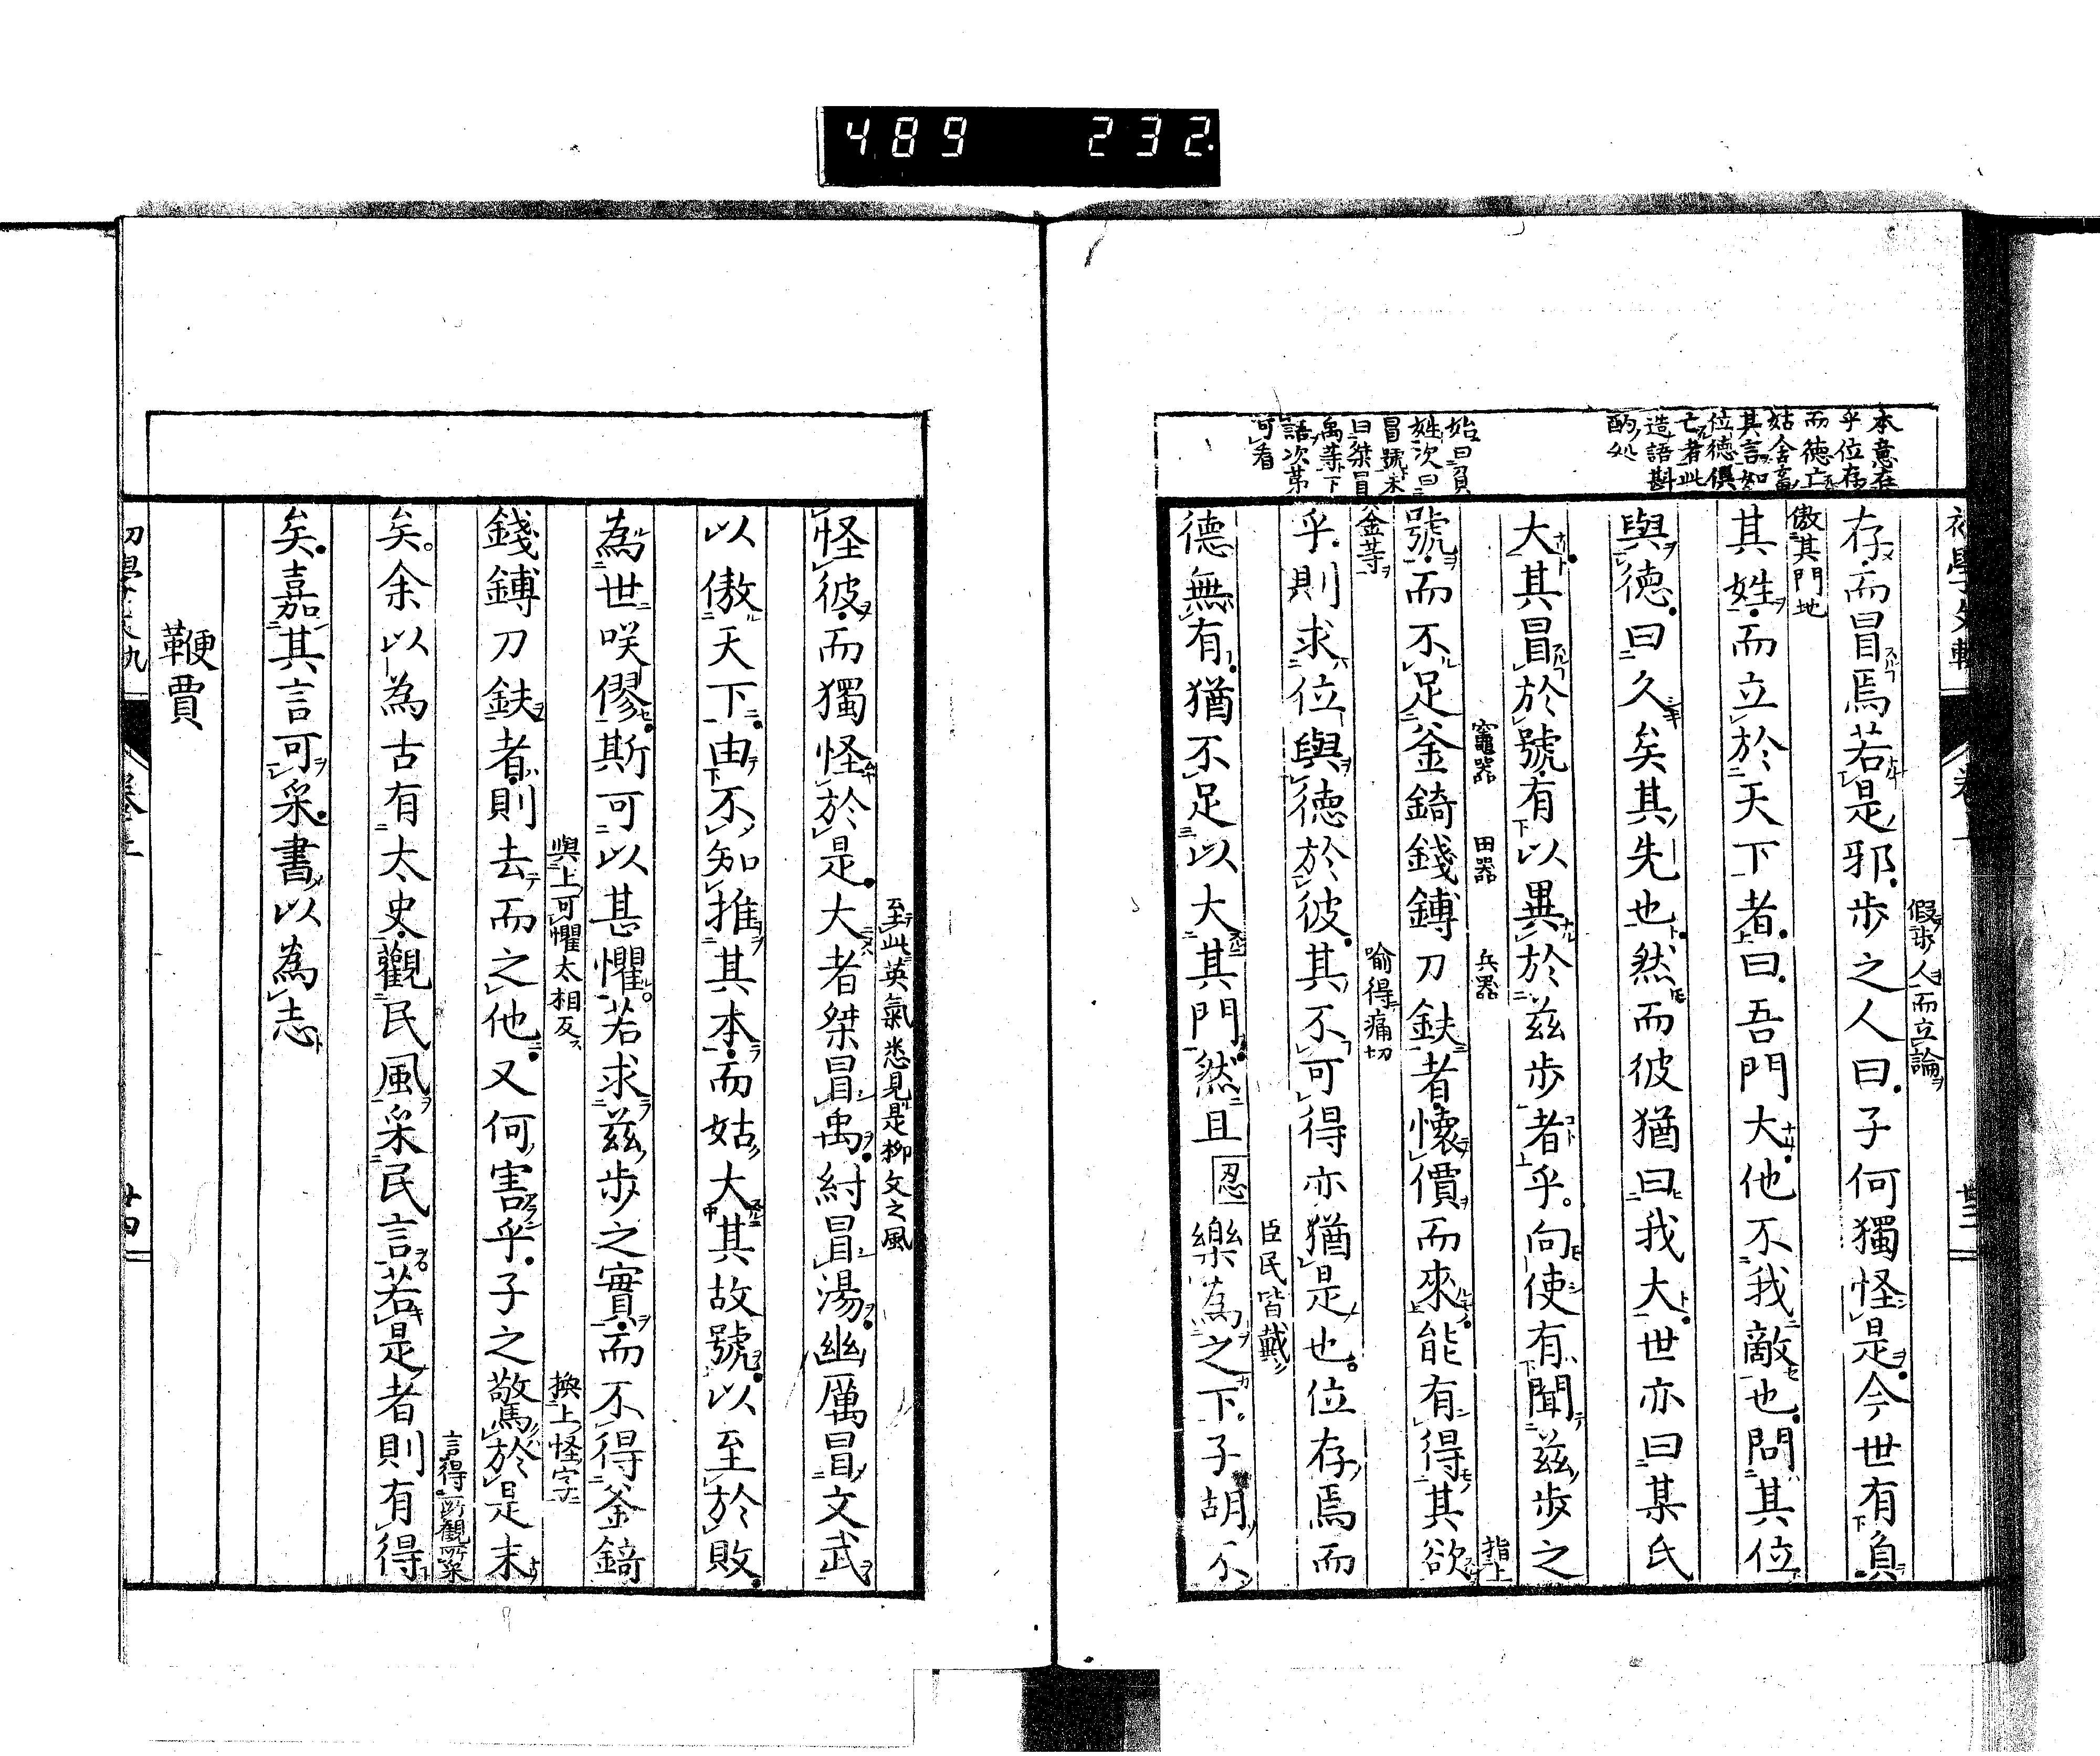 489 232
本意在
乎位存
而徳亡
姑舍富
其言如
位徳俱
亡者此
造語斟
酌処
始曰負
姓次曰
冒號末
曰桀冒
禹等下
語次第
可看
卷二
廿三
假歩人而立論
存而冒焉若是邪歩之人曰子何獨怪是今世有負
傲其門地
其姓而立於天下者曰吾門大他不我敵也問其位
與徳曰久矣其先也然而彼猶曰我大世亦曰某氏
大其冒於號有以異於兹歩者乎向使有聞兹歩之
竈器 田器 兵器 指上
號而不足釜錡錢鎛刀鈇者懷價而來能有得其欲
金等 喻得痛切
乎則求位與徳於彼其不可得亦猶是也位存焉而
臣民皆戴
德無有猶不足以大其門然且忍樂為之下子胡不
至此英氣悉見是柳文之風
怪彼而獨怪於是大者桀冒禹紂冒湯幽厲冒文武
以傲天下由不知推其本而姑大其故號以至於敗
為世咲僇斯可以甚懼若求兹歩之實而不得釜錡
與上可懼太相反 換上怪字
錢鎛刀鈇者則去而之他又何害乎子之驚於是末
言得所觀所采
矣余以為古有太史觀民風采民言若是者則有得
矣嘉其言可采書以為志
鞭賈
廿四